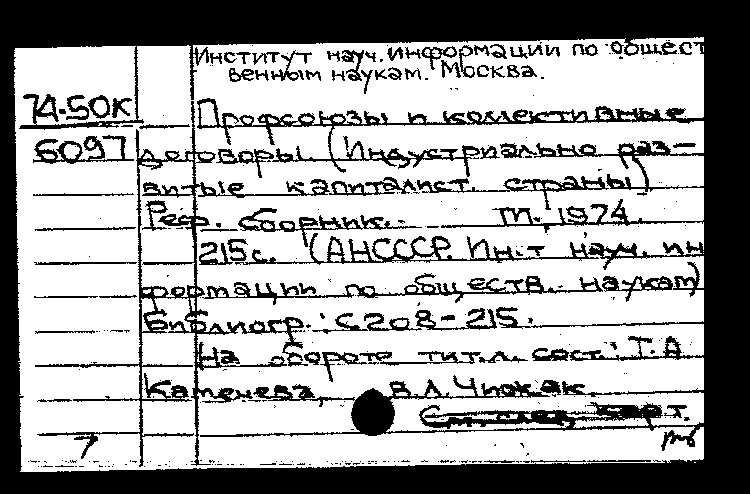 Институт науч. информации по общест
венным наукам. Москва.
74-50к
Профсоюзы и коллективные
6097 договоры. (Индустриально раз-
витые капиталист. страны)
Реф. сборник.. М., 1974.
215с. (АНСССР. Ин-т науч. ин
формации по обществ. наукам)
Библиогр.: С208-215.
На обороте тит.л. сост.: Т.А
Каменева, В.Л.
См. след. карт.
7